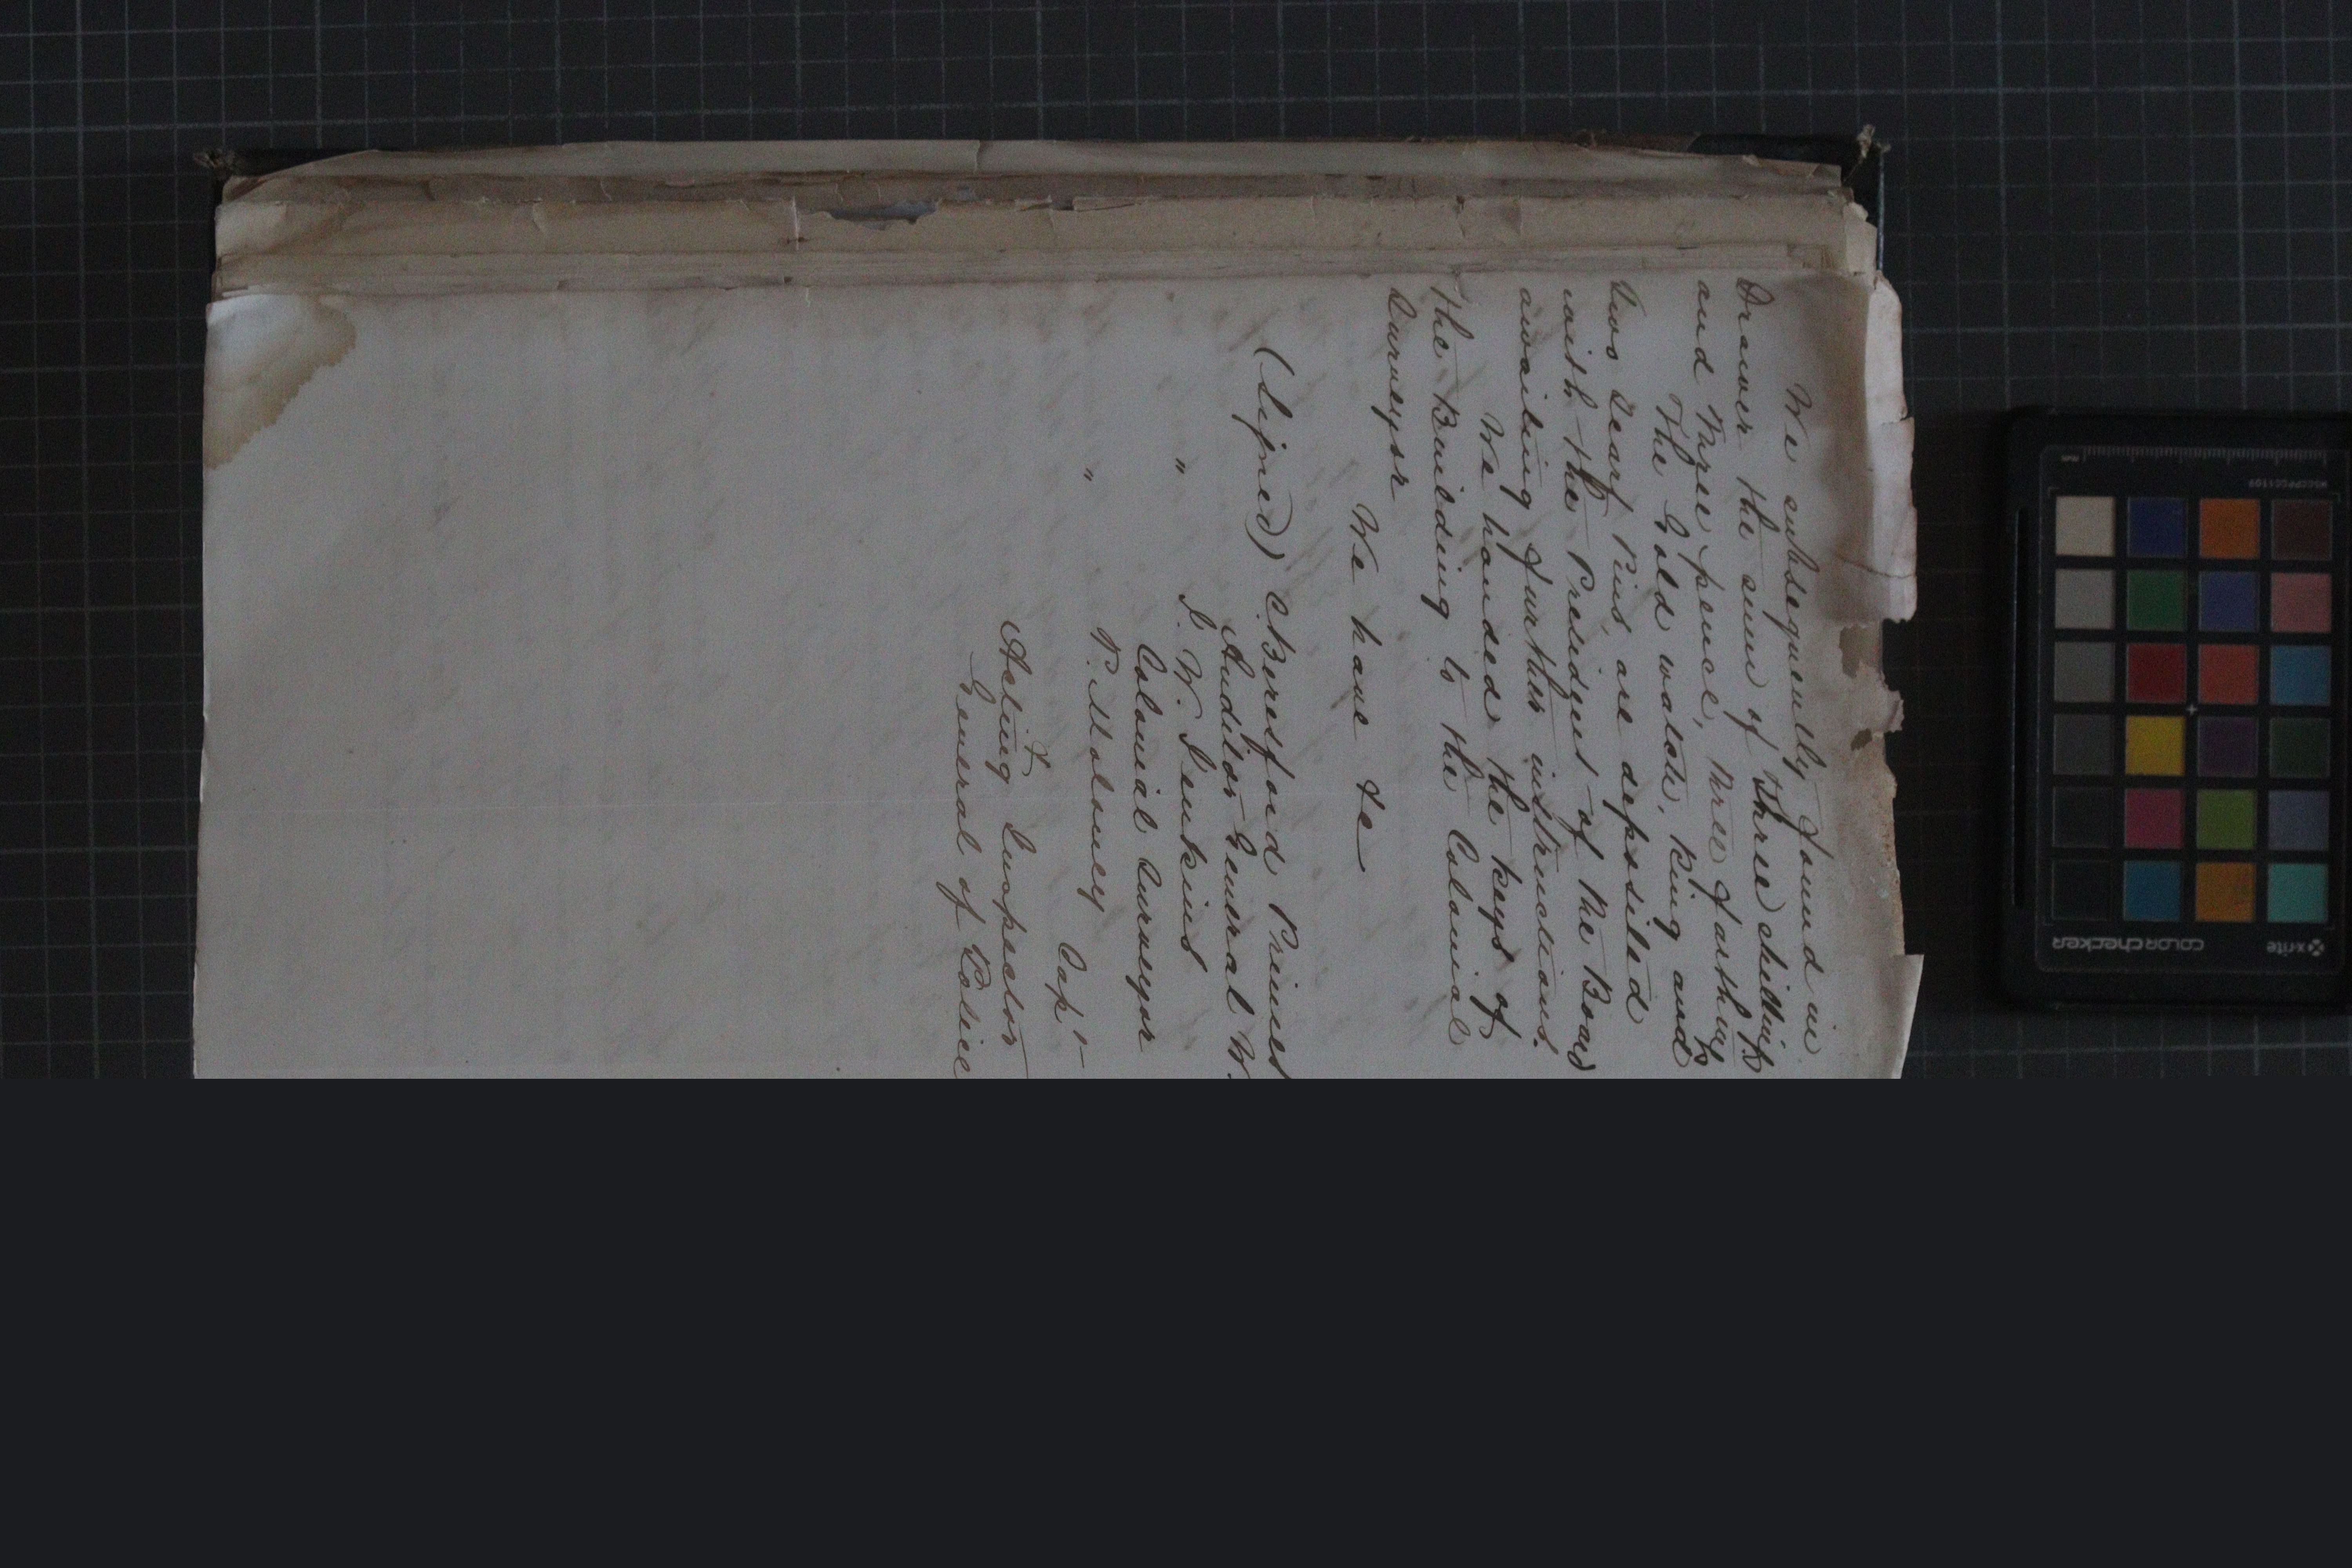 We subsequently found in
Drawer the sum of three shillings
and three pence, three farthings
The Gold watch, Ring and
two Scarf Pins, are deposited
with the President of the Board
awaiting further instructions.
We handed the keys of
the Building to the Colonial
Surveyor
We have &c
(Signed) C. Beresford Primet
Auditor General W.
" J. W. Jenkins
Colonial Surveyor
" P. Moloney Capt
&
Acting Inspector
General of Police
x-rite
colorchecker